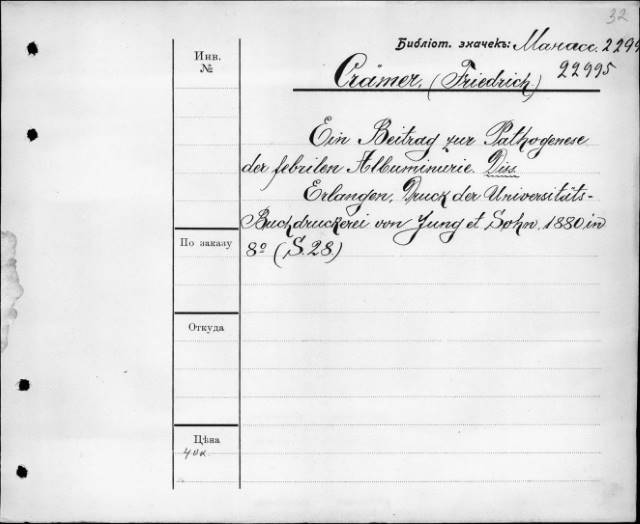 32
Библіот. значекъ: Манасс. 2299
22995
Инв.
№
Crämer, (Friedrich)
Ein Beitrag zur Pathogenese
der febrilen Albuminurie. Diss.
Erlangen, Druck der Universitäts-
Buchdruckerei von Jung et Sohn, 1880 in
8º (S. 28.)
По заказу
Откуда
Цѣна
40к.